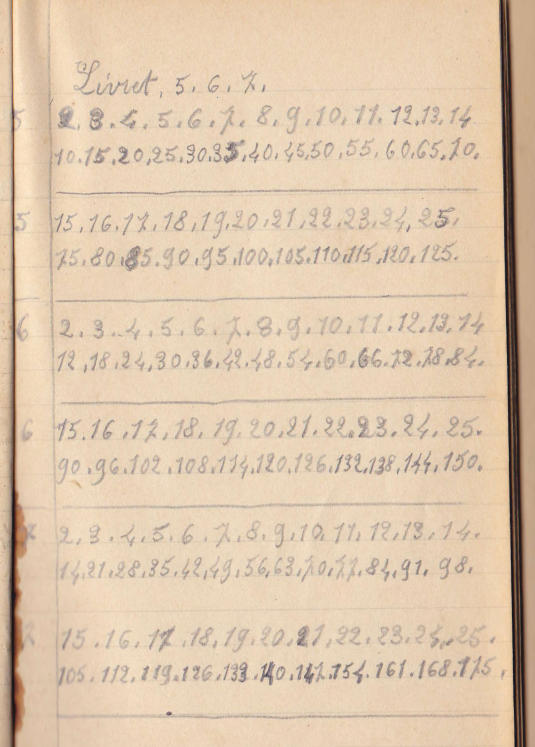 Livret, 5. 6. 7.
5 2. 3. 4. 5. 6. 7. 8. 9. 10. 11. 12. 13. 14
10. 15. 20. 25. 30. 35. 40. 45. 50. 55. 60. 65. 70.
5 15. 16. 17. 18. 19. 20. 21. 22. 23. 24. 25.
75. 80. 85. 90. 95. 100. 105. 110. 115. 120. 125.
6 2. 3. 4. 5. 6. 7. 8. 9. 10. 11. 12. 13. 14
12. 18. 24. 30. 36. 42. 48. 54. 60. 66. 72. 78. 84.
6 15. 16. 17. 18. 19. 20. 21. 22. 23. 24. 25.
90. 96. 102. 108. 114. 120. 126. 132. 138. 144. 150.
7 2. 3. 4. 5. 6. 7. 8. 9. 10. 11. 12. 13. 14.
14. 21. 28. 35. 42. 49. 56. 63. 70. 77. 84. 91. 98.
7 15. 16. 17. 18. 19. 20. 21. 22. 23. 24. 25.
105. 112. 119. 126. 133. 140. 147. 154. 161. 168. 175.